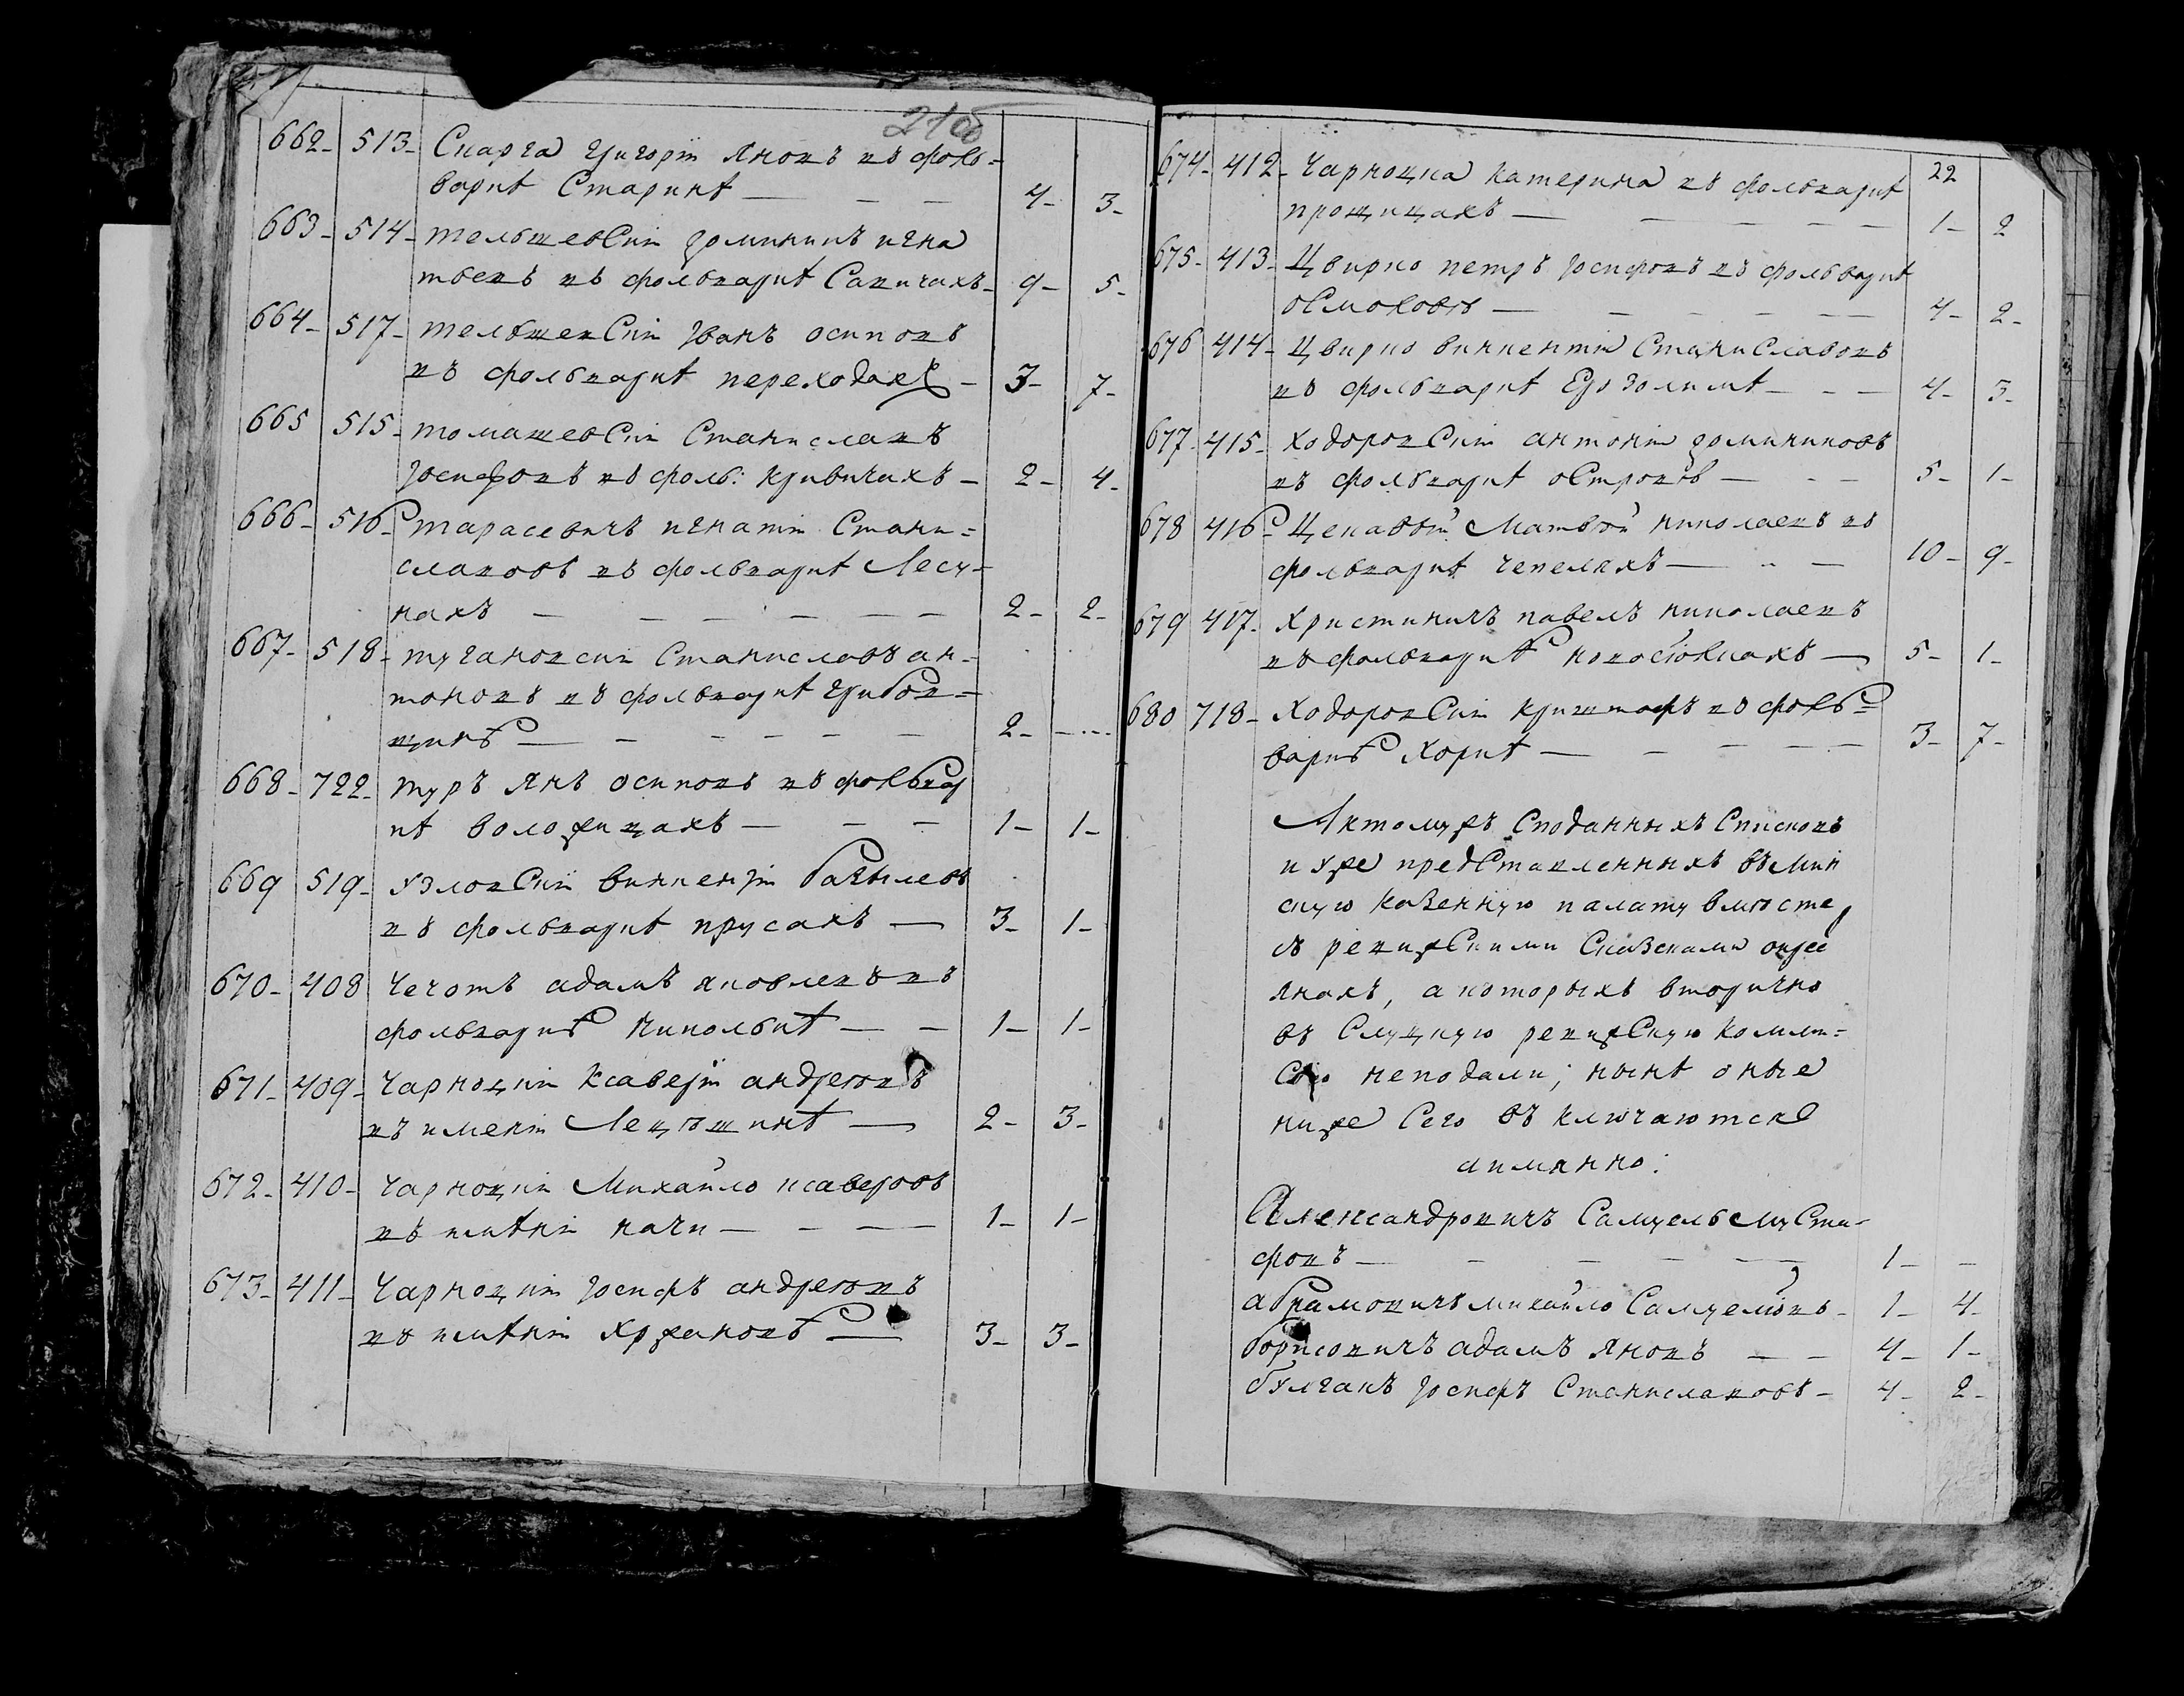 21об
662- 513- Скарга Григорій Яновъ въ фоль-
варкѣ Старинѣ — 4- 3-
663- 514- тельшевскій доминикъ игна
тьевъ въ фольваркѣ Савичахъ- 9- 5-
664- 517- тельшевскій Іванъ осиповъ
въ фольваркѣ переходахъ - 3- 7-
665 515- томашевскій Станиславъ
Іосифовъ въ фоль: кривичахъ - 2- 4-
666- 516- тарасевичъ игнатій Стани=
славовъ въ фольваркѣ Лесу-
нахъ — 2- 2-
667- 518- тугановскій Станиславъ ан-
тоновъ въ фольваркѣ грибов-
щинѣ — 2- -...
668- 722- туръ Янъ осиповъ въ фольвар
кѣ воложицахъ — 1- 1-
669 519- узловскій винцентій базылевъ
въ фольваркѣ прусахъ — 3- 1-
670- 408 Чечотъ адамъ яковлевъ въ
фольваркѣ Никольбкѣ — 1- 1-
671- 409- Чарноцкій Ксаверій андреювъ
въ именіи Лецѣшинѣ — 2- 3-
672- 410- Чарноцкій Михайло ксаверовъ
въ имѣніи начи — 1- 1-
673- 411- Чарноцкій Іосифъ андреювъ
въ имѣніи Хржановѣ — 3- 3-
22
674- 412- Чарноцка Катерина въ фольваркѣ
прощицахъ — 1- 2
675- 413- Цвирко петръ Іосифовъ въ фольваркѣ
осмоловѣ — 4- 2-
676 414- Цвирко винцентій Станиславовъ
въ фольваркѣ Ерозолимѣ - 4- 3-
677- 415- Ходоровскій антоній доминиковъ
въ фольваркѣ островѣ — 5- 1-
678 416- Цекавый Матвѣй николаевъ въ
фольваркѣ чепеляхъ — 10- 9-
679 417- Христиничъ павелъ николаевъ
въ фольваркѣ новосіолкахъ — 5- 1-
680 718- Ходоровскій криштофъ въ фоль=
варкѣ Хоркѣ — 3- 7-
Актомужъ споданныхъ списковъ
и уже представленныхъ въ мин
скую казенную палату вмѣсте
съ ревижскими сказками окре
янахъ, а которыхъ вторично
въ Слуцкую ревижскую комми=
сію неподали; нынѣ оные
ниже сего въключаются
аимянно:
Александровичъ Самуель муста-
фовъ — 1- -
абрамовичъ михайло Самуеловъ - 1- 4-
борисовичъ адамъ Яновъ — 4- 1-
булгакъ Іосифъ Станиславовъ - 4- 2-